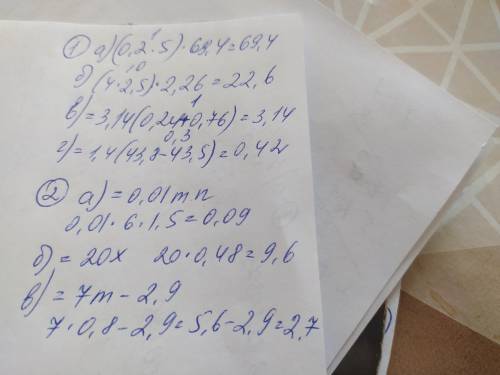 ① а) (0,2 · 5) · 69,4 = 69,4
1
б) (4 · 2,5) · 2,26 = 22,6
10
в) = 3,14 (0,24 + 0,76) = 3,14
1
г) = 1,4 (43,8 - 43,5) = 0,42
0,3
② а) = 0,01mn
0,01 · 6 · 1,5 = 0,09
б) = 20x 20 · 0,48 = 9,6
в) = 7m - 2,9
7 · 0,8 - 2,9 = 5,6 - 2,9 = 2,7